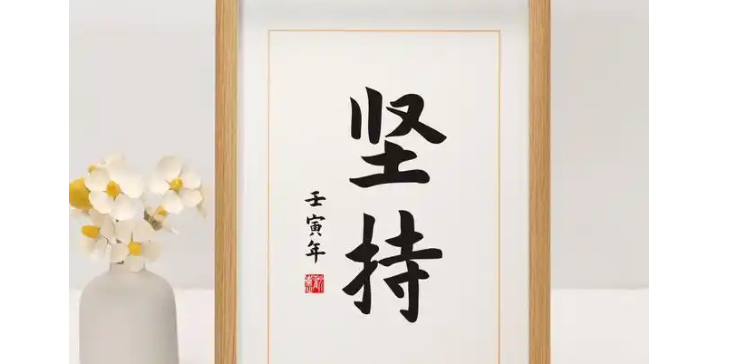 坚持
壬寅年